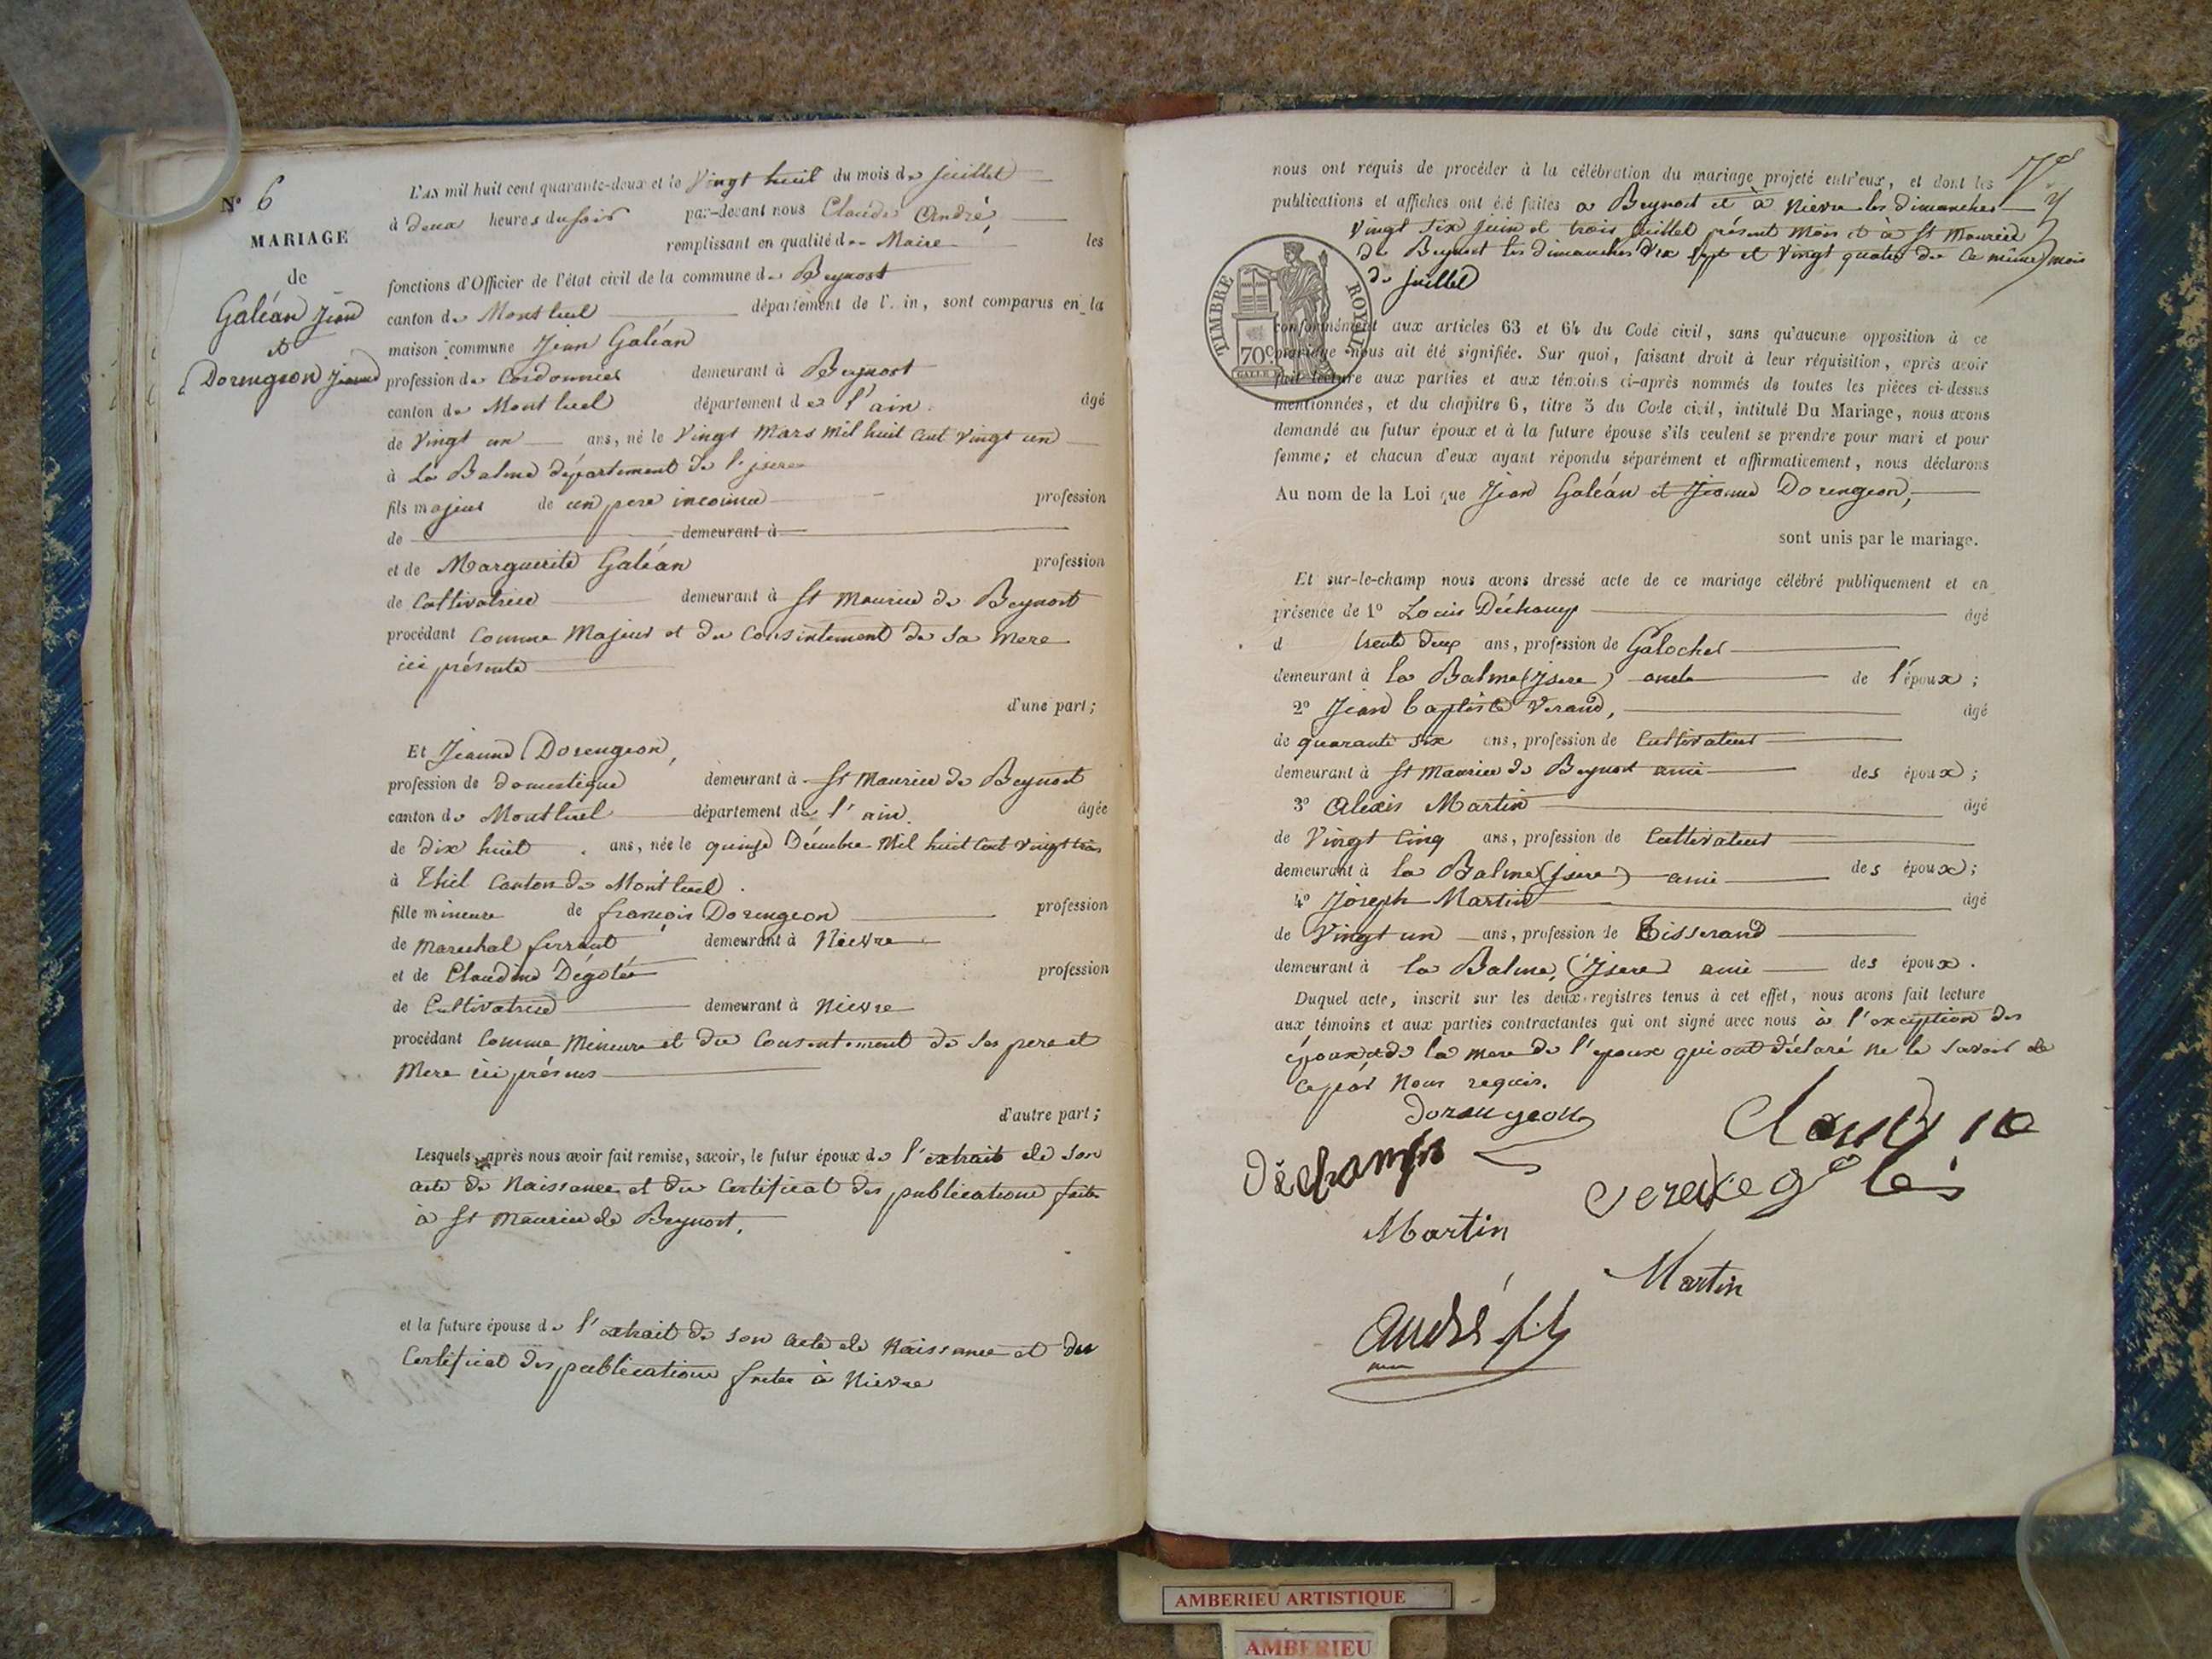 N° 6
MARIAGE
de
Galéan Jean
et
Dorengeon Jeanne
L'AN mil huit cent quarante-deux et le Vingt huit du mois de juillet
à deux heures du soir par-devant nous Claude André,
remplissant en qualité de Maire les
fonctions d'Officier de l'état civil de la commune de Beynost
canton de Montluel département de l'Ain, sont comparus en la
maison commune Jean Galéan
profession de Cordonnier demeurant à Beynost
canton de Montluel département de l'ain. âgé
de Vingt un ans, né le Vingt Mars mil huit cent vingt un
à La Balme département de l'jsere
fils majeur de un pere inconnu profession
de demeurant à
et de Marguerite Galéan profession
de Cultivatrice demeurant à St Maurice de Beynost
procédant Comme Majeur et du Consintement de sa Mere
ici présente
d'une part;
Et Jeanne Dorengeon,
profession de domestique demeurant à St Maurice de Beynost
canton de Montluel département de l'ain. âgée
de dix huit ans, née le quinze Décembre Mil huit Cent Vingt trois
à Thil Canton de Montluel.
fille mineure de françois Dorengeon profession
de Marechal ferrant demeurant à Nievre
et de Claudine Dégolée profession
de Cultivatrice demeurant à Nievre
procédant Comme Mineure et du Consentement de ses pere et
Mere ici présens
d'autre part;
Lesquels, après nous avoir fait remise, savoir, le futur époux de l'extrait de son
acte de Naissance et du Certificat des publications faites
à St Maurice de Beynost.
et la future épouse de l'extrait de son acte de Naissance et du
Certificat des publications faites à Nievre
nous ont requis de procéder à la célébration du mariage projeté entr'eux, et dont les
publications et affiches ont été faites a Beynost et à Nievre les dimanches
Vingt six juin et trois juillet présent Mois et à St Maurice
de Beynost les dimanches Dix sept et Vingt quatre du Ce même mois
de juillet
TIMBRE ROYAL
70c
conformément aux articles 63 et 64 du Code civil, sans qu'aucune opposition à ce
mariage nous ait été signifiée. Sur quoi, faisant droit à leur réquisition, après avoir
fait lecture aux parties et aux témoins ci-après nommés de toutes les pièces ci-dessus
mentionnées, et du chapitre 6, titre 5 du Code civil, intitulé Du Mariage, nous avons
demandé au futur époux et à la future épouse s'ils veulent se prendre pour mari et pour
femme; et chacun d'eux ayant répondu séparément et affirmativement, nous déclarons
Au nom de la Loi que Jean Galéan et Jeanne Dorengeon,
sont unis par le mariage.
Et sur-le-champ nous avons dressé acte de ce mariage célébré publiquement et en
présence de 1° Louis Déchamp âgé
d trente deux ans, profession de Galocher
demeurant à la Balme (Jsere) oncle de l'époux;
2° Jean baptiste Verand, âgé
de quarante six ans, profession de Cultivateur
demeurant à St Maurice de Beynost ami des époux;
3° Alexis Martin âgé
de Vingt Cinq ans, profession de Cultivateur
demeurant à la Balme (jsere) ami des époux;
4° Joseph Martin âgé
de Vingt un ans, profession de Tisserand
demeurant à la Balme, (Jsere) ami des époux.
Duquel acte, inscrit sur les deux registres tenus à cet effet, nous avons fait lecture
aux témoins et aux parties contractantes qui ont signé avec nous à l'exception des
époux et de la mere de l'epoux qui ont déclaré ne le savoir de
Ce par Nous requis.
dorangeon
Claudine
déchamps
Martin
Martin
André
AMBERIEU ARTISTIQUE
AMBERIEU